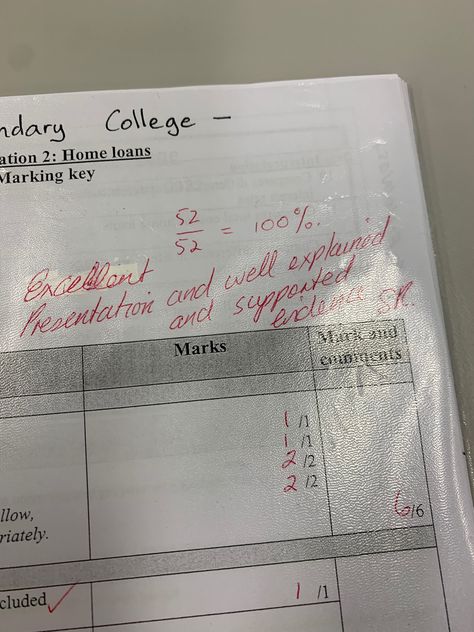 ndary College -
ation 2: Home loans
Marking key
52
52 = 100%.
Excellent
Presentation and well explained
and supported
evidence SR.
Marks
Mark and
comments
1 /1
1 /1
2 /2
2 /2
6/6
llow,
riately.
cluded ✓
1 /1